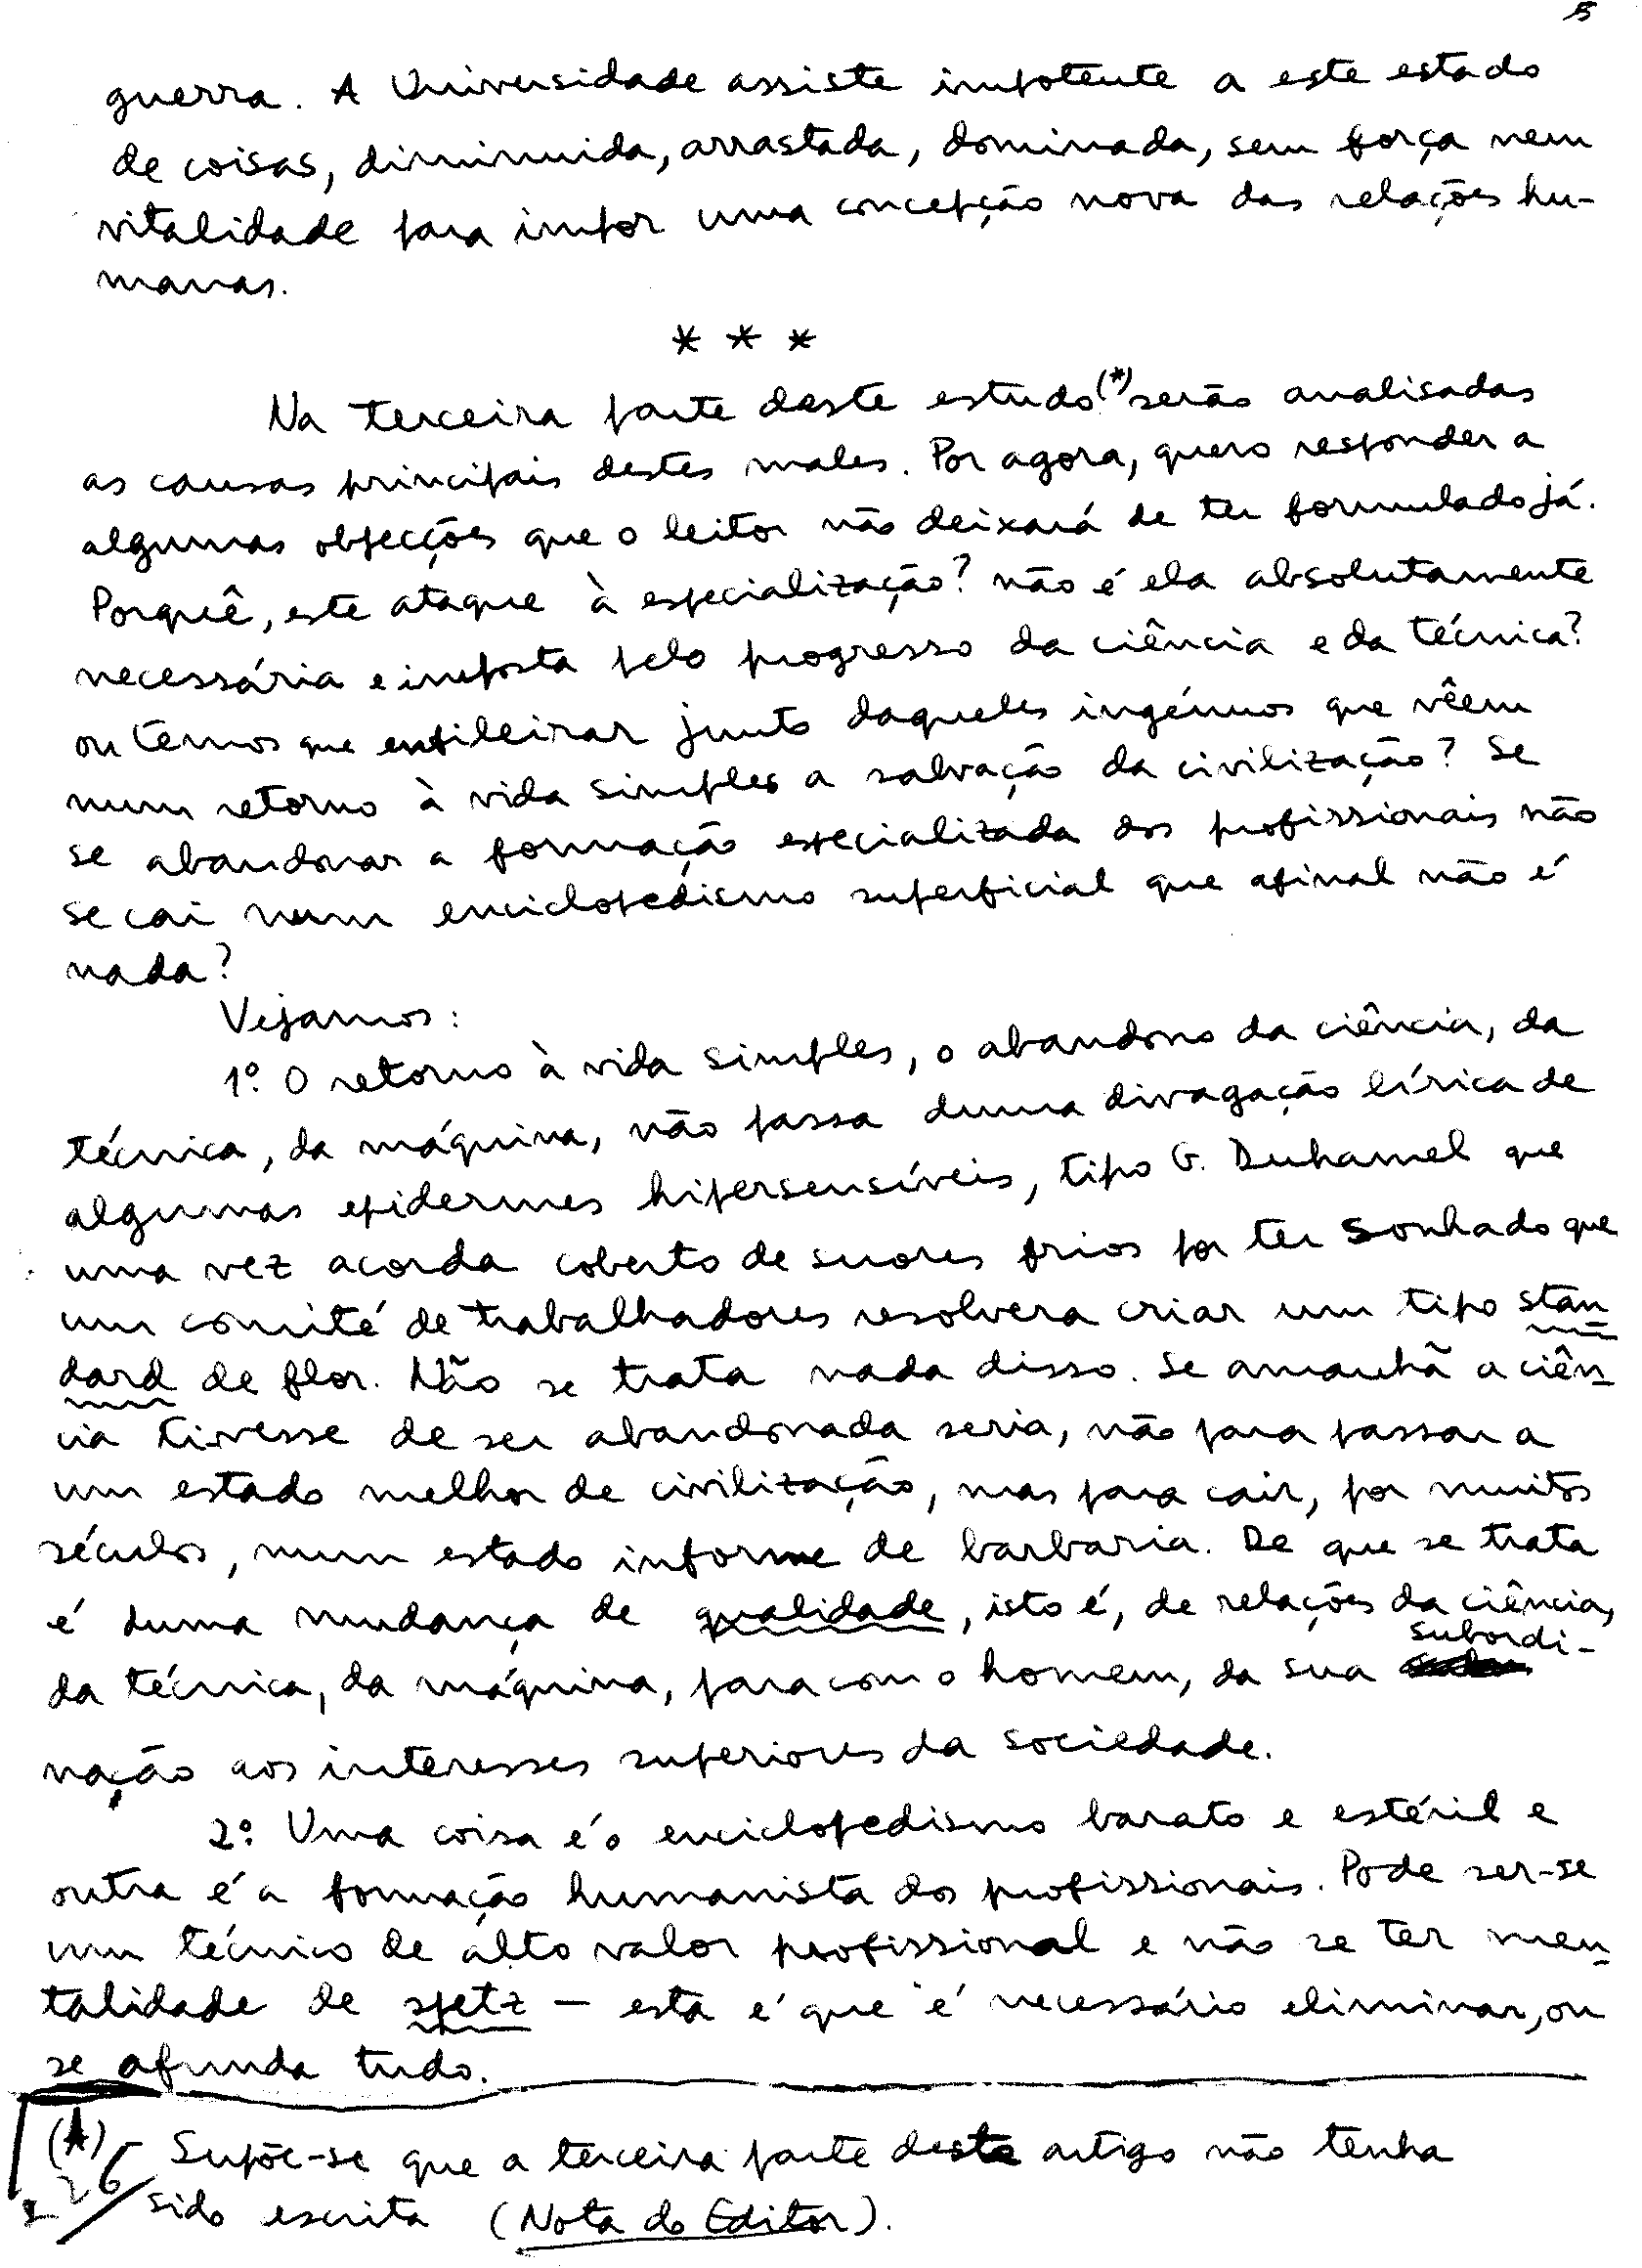 5
guerra. A Universidade assiste impotente a este estado
de coisas, diminuida, arrastada, dominada, sem força nem
vitalidade para impor uma concepção nova das relações hu-
manas.
* * *
Na terceira parte deste estudo(*) serão analisadas
as causas principais destes males. Por agora, quero responder a
algumas objecções que o leitor não deixará de ter formulado já.
Porquê, este ataque à especialização? não é ela absolutamente
necessária e imposta pelo progresso da ciência e da técnica?
ou temos que enfileirar junto daqueles ingénuos que vêem
num retorno à vida simples a salvação da civilização? Se
se abandonar a formação especializada dos profissionais não
se cai num enciclopedismo superficial que afinal não é
nada?
Vejamos:
1º. O retorno à vida simples, o abandono da ciência, da
técnica, da máquina, não passa duma divagação lírica de
algumas epidermes hipersensíveis, tipo G. Duhamel que
uma vez acorda coberto de suores frios por ter sonhado que
um comité de trabalhadores resolvera criar um tipo stan
dard de flor. Não se trata nada disso. Se amanhã a ciên
cia tivesse de ser abandonada seria, não para passar a
um estado melhor de civilização, mas para cair, por muitos
séculos, num estado informe de barbaria. De que se trata
é duma mudança de qualidade, isto é, de relações da ciência,
da técnica, da máquina, para com o homem, da sua subordi-
nação aos interesses superiores da sociedade.
2º. Uma coisa é o enciclopedismo barato e estéril e
outra é a formação humanista dos profissionais. Pode ser-se
um técnico de alto valor profissional e não se ter men
talidade de spetz — esta é que é necessário eliminar, ou
se afunda tudo.
(*) Supõe-se que a terceira parte deste artigo não tenha
sido escrita (Nota do Editor).